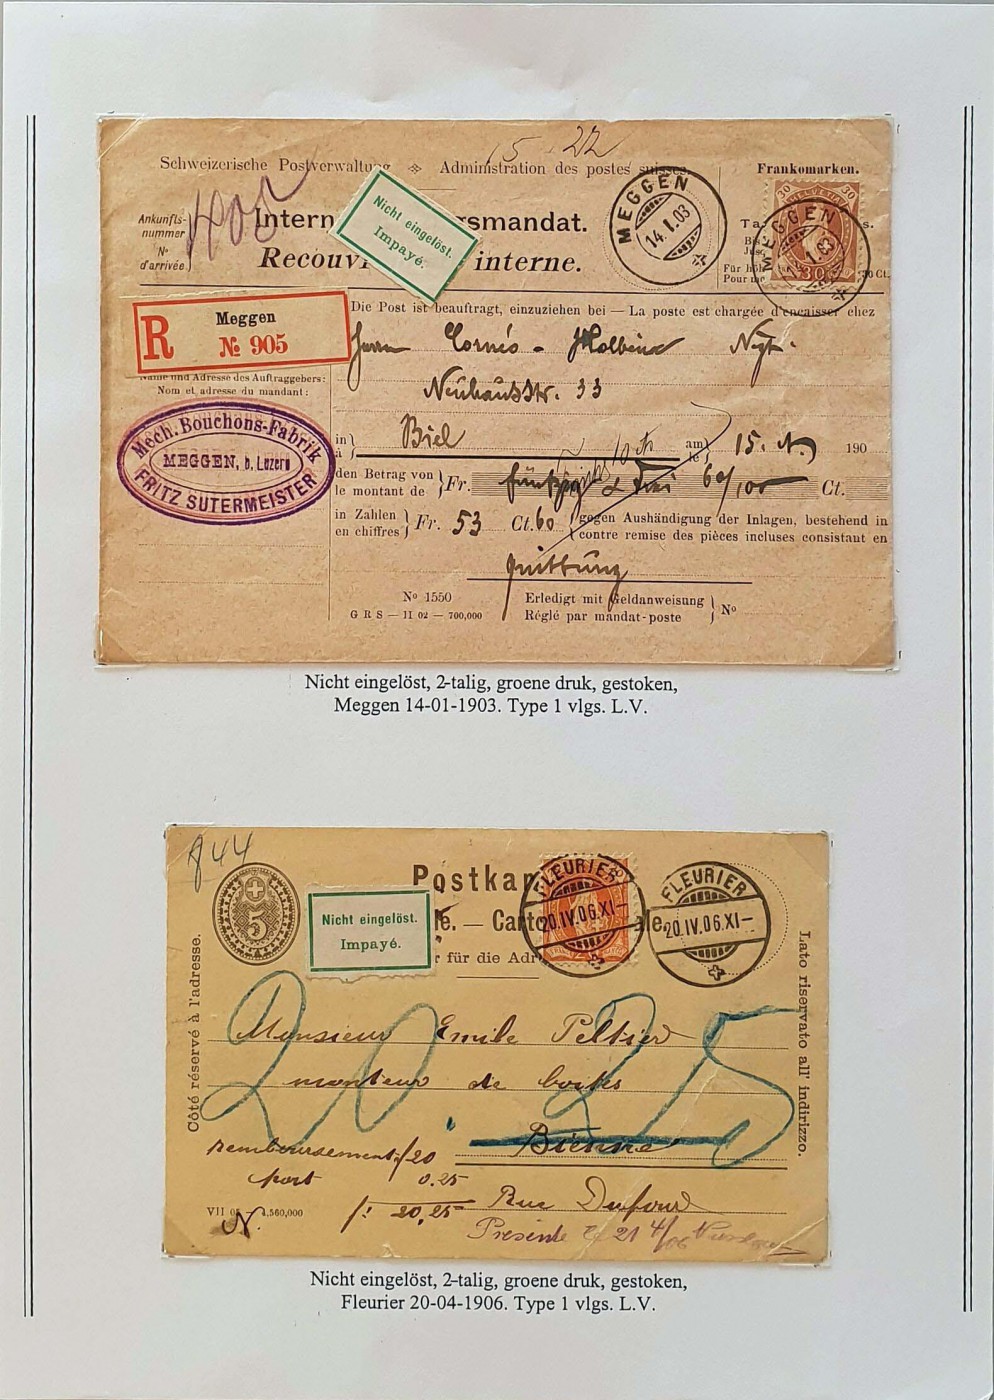 15 22
Schweizerische Postverwaltung ❖ Administration des postes suisses.
Frankomarken.
Ankunfts-
nummer
No
d'arrivée
Intern gsmandat.
Recouv interne.
Nicht eingelöst.
Impayé.
MEGGEN
14.I.03
30 HELVETIA 30
MEGGEN
30
Für höh
Pour me
30 Ct.
R
Meggen
№ 905
Die Post ist beauftragt, einzuziehen bei — La poste est chargée d'encaisser chez
Name und Adresse des Auftraggebers:
Nom et adresse du mandant:
Neuhausstr. 33
Mech. Bouchons-Fabrik
MEGGEN, b. Luzern
FRITZ SUTERMEISTER
in
à
Biel
am
le
15. 190
den Betrag von
le montant de
Fr. 60/100 Ct.
in Zahlen
en chiffres
Fr. 53 Ct. 60
gegen Aushändigung der Inlagen, bestehend in
contre remise des pièces incluses consistant en
Quittung
No 1550
G R S — II 02 — 700,000
Erledigt mit Geldanweisung
Réglé par mandat-poste
No
Nicht eingelöst, 2-talig, groene druk, gestoken,
Meggen 14-01-1903. Type 1 vlgs. L.V.
844
5
Postkar
le. — Carto ale.
r für die Adr
Nicht eingelöst.
Impayé.
FLEURIER
20.IV.06.XI–
FLEURIER
20.IV.06.XI–
Côté réservé à l'adresse.
Lato riservato all' indirizzo.
20.25
Monsieur Emile Peltier
monteur de boites
Bienne
remboursement f 20
port 0.25
f: 20,25
Rue Dufour
VII 05 — 4,560,000
N.
Présenté 21 4/06
Nicht eingelöst, 2-talig, groene druk, gestoken,
Fleurier 20-04-1906. Type 1 vlgs. L.V.